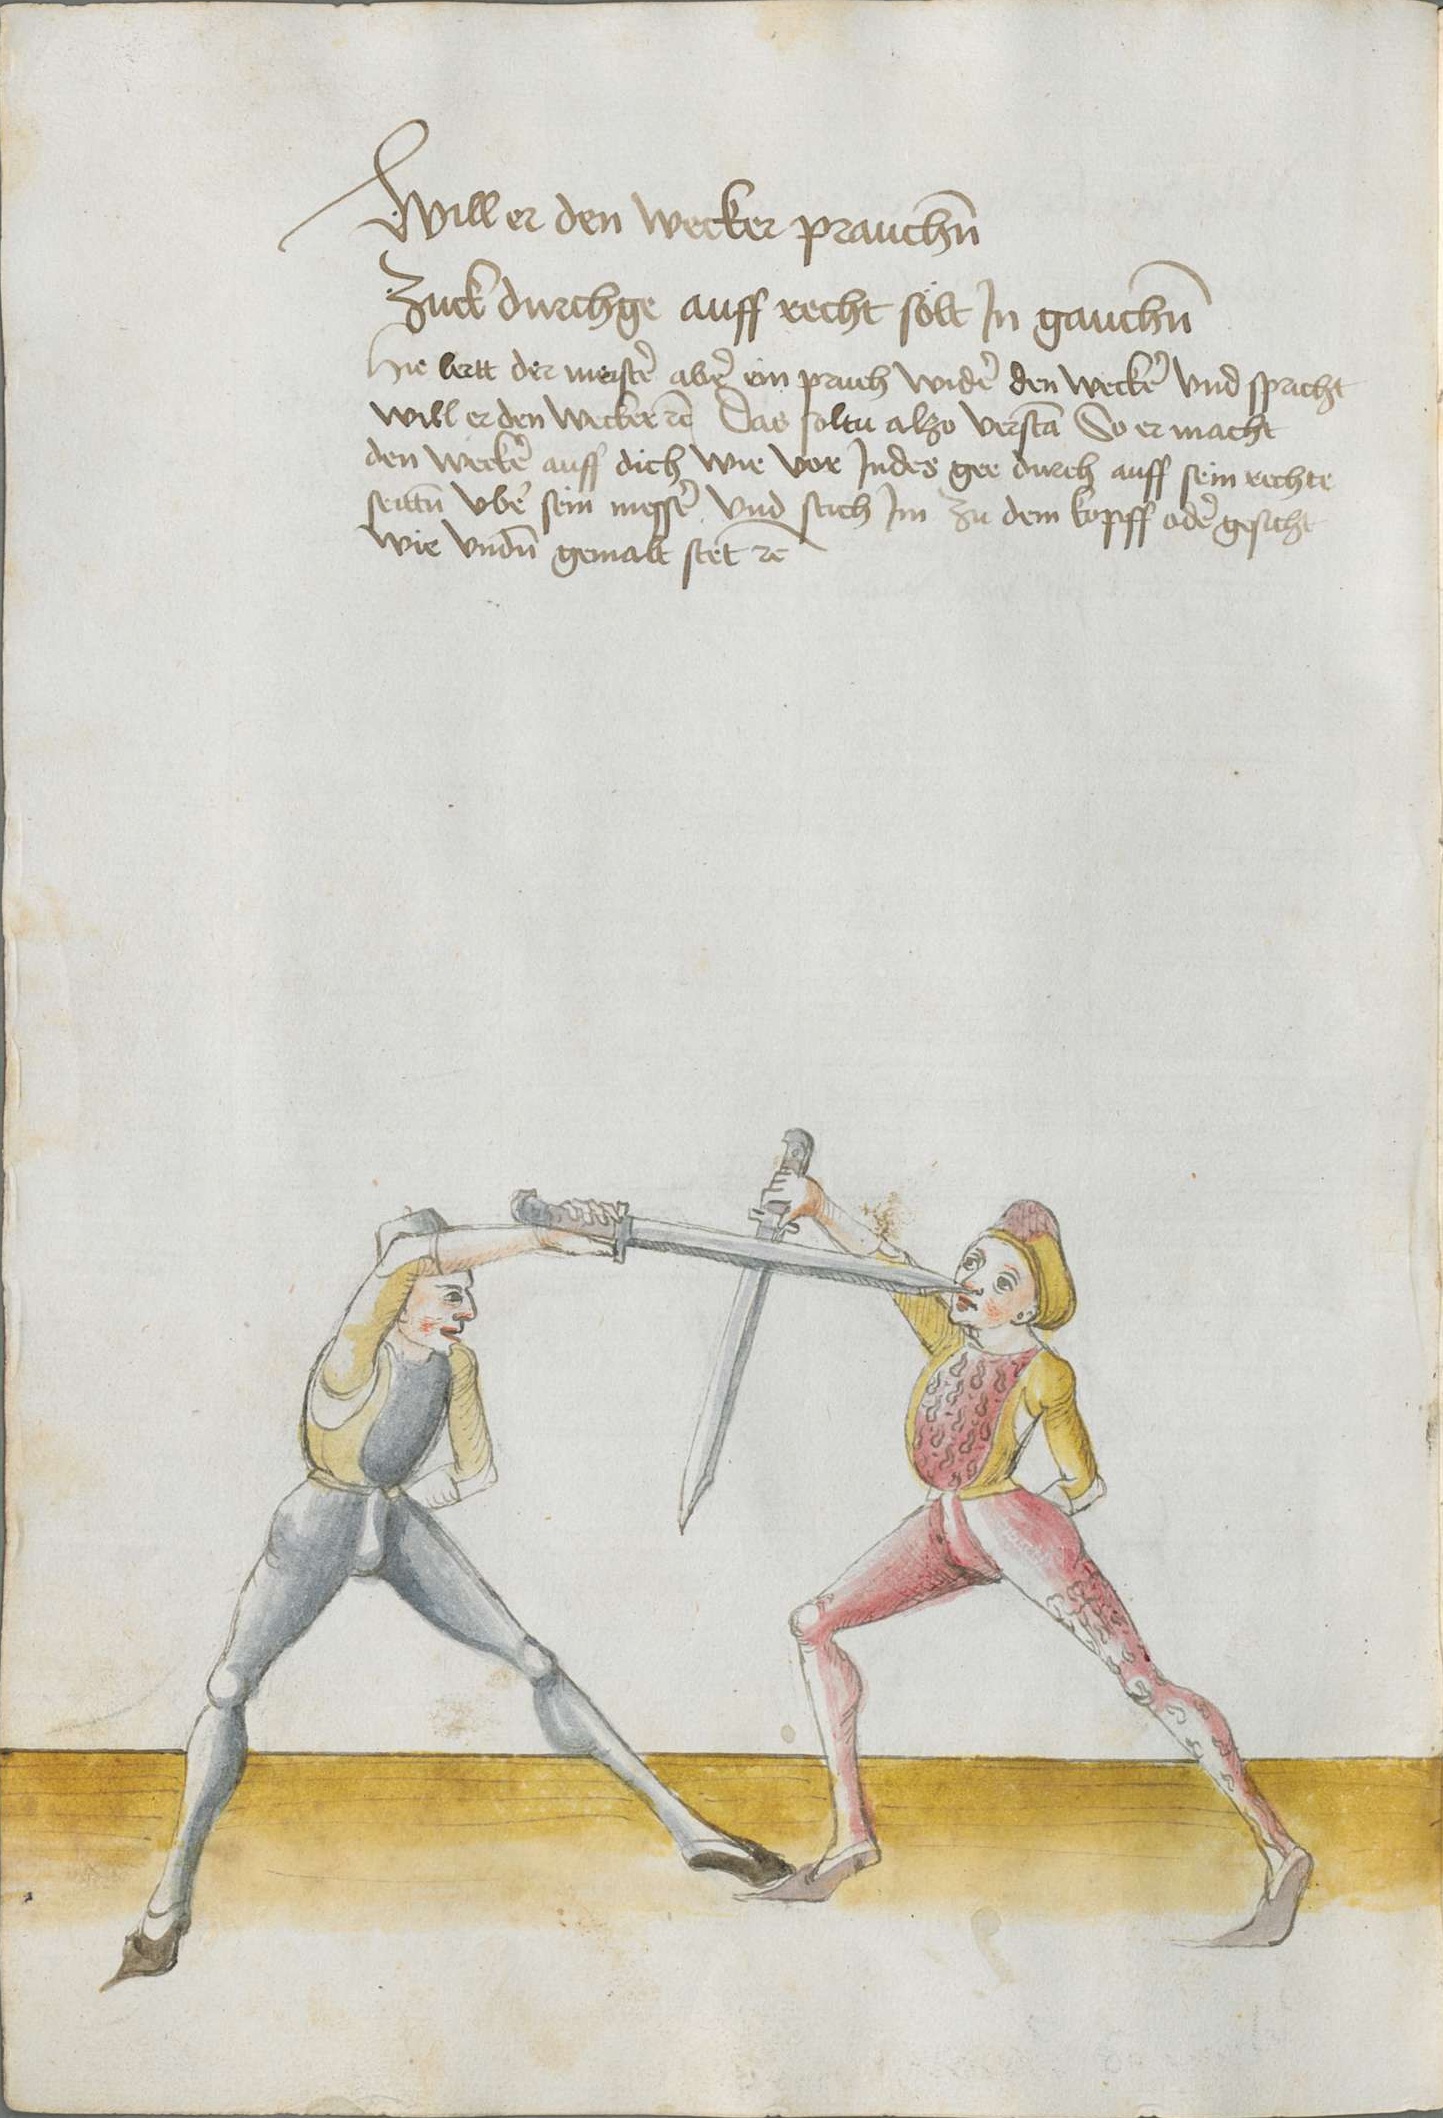 Will er den wecker prauchn̄
Zuck durchge auff recht solt In gauchn̄
Hie lertt der meister̄ aber̄ ein pruch wider̄ den wecker̄ Vnd spricht
will er den wecker rc̄ Das soltu alzo verstā So er macht
den wecker̄ auff dich wie vor Indes gee durch auff sein rechte
seittn̄ vber̄ sein messer̄ Vnd stich Im zu dem kopff oder̄ gesicht
wie vndn̄ gemalt stet rc̄